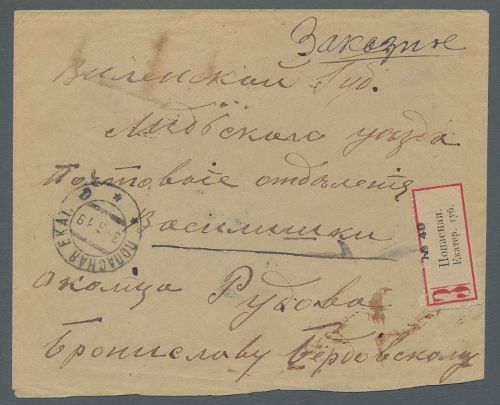 Заказное
Виленской Губ.
Лидѣскаго уѣзда
Почтовое отдѣленіе
Василишки
околица Рудова
Брониславу Бердовскому
ПОПАСНАЯ ЕКАТ.
З
№ 40
Попасная.
Екатер. губ.